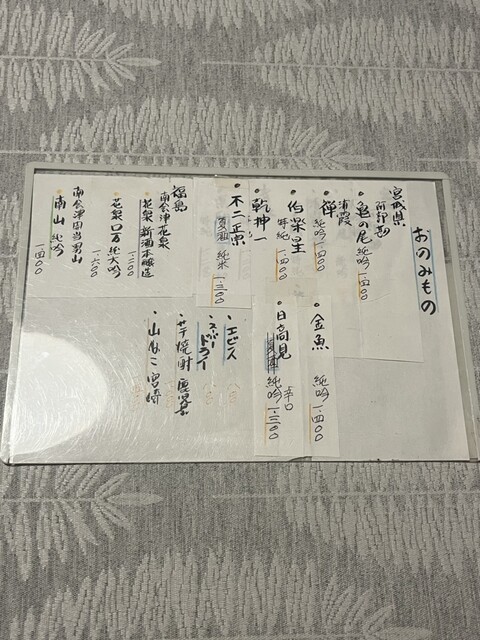 おのみもの
宮城県
亀の尾 純吟 一、四〇〇
浦霞
禅 純吟 一、四〇〇
伯楽星
特純 一、四〇〇
乾坤一
不二正宗
純米 一、三〇〇
福島
南会津花泉
花泉 新酒本醸造
一、二〇〇
花泉ロ万 純大吟
一、六〇〇
南会津田島男山
南山 純吟
一、四〇〇
金魚 純吟 一、四〇〇
日高見 辛口
純吟 一、三〇〇
エビス
スーパードライ
サテ焼酎 鹿児島
山ねこ 宮崎